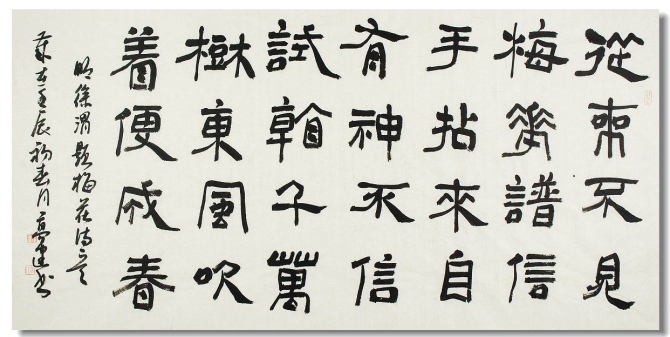 從來不見
梅花譜信
手拈來自
有神不信
試看千萬
樹東風吹
着便成春
明徐渭題梅花诗
歲在壬辰初春月